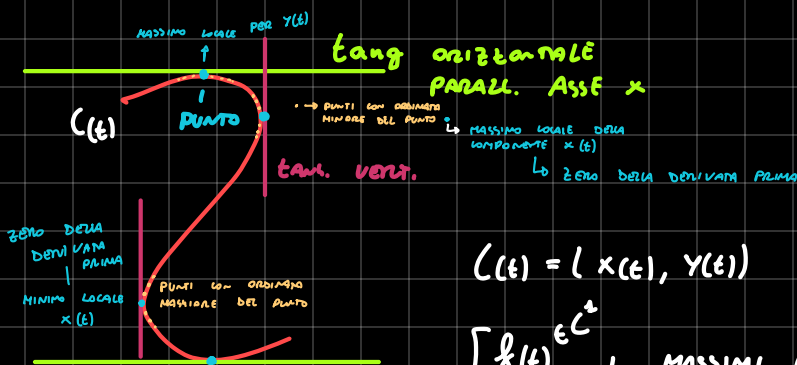 MASSIMO LOCALE PER Y(t)
tang ORIZZONTALE
PARALL. ASSE x
C(t)
PUNTO
• → PUNTI CON ORDINATA
MINORE DEL PUNTO •
↳ MASSIMO LOCALE DELLA
COMPONENTE X(t)
↳ ZERO DELLA DERIVATA PRIMA
TANG. VERT.
ZERO DELLA
DERIVATA
PRIMA
MINIMO LOCALE
X(t)
PUNTI CON ORDINATA
MAGGIORE DEL PUNTO
C(t) = ( X(t), Y(t))
f(t) ∈ C²
MASSIMI